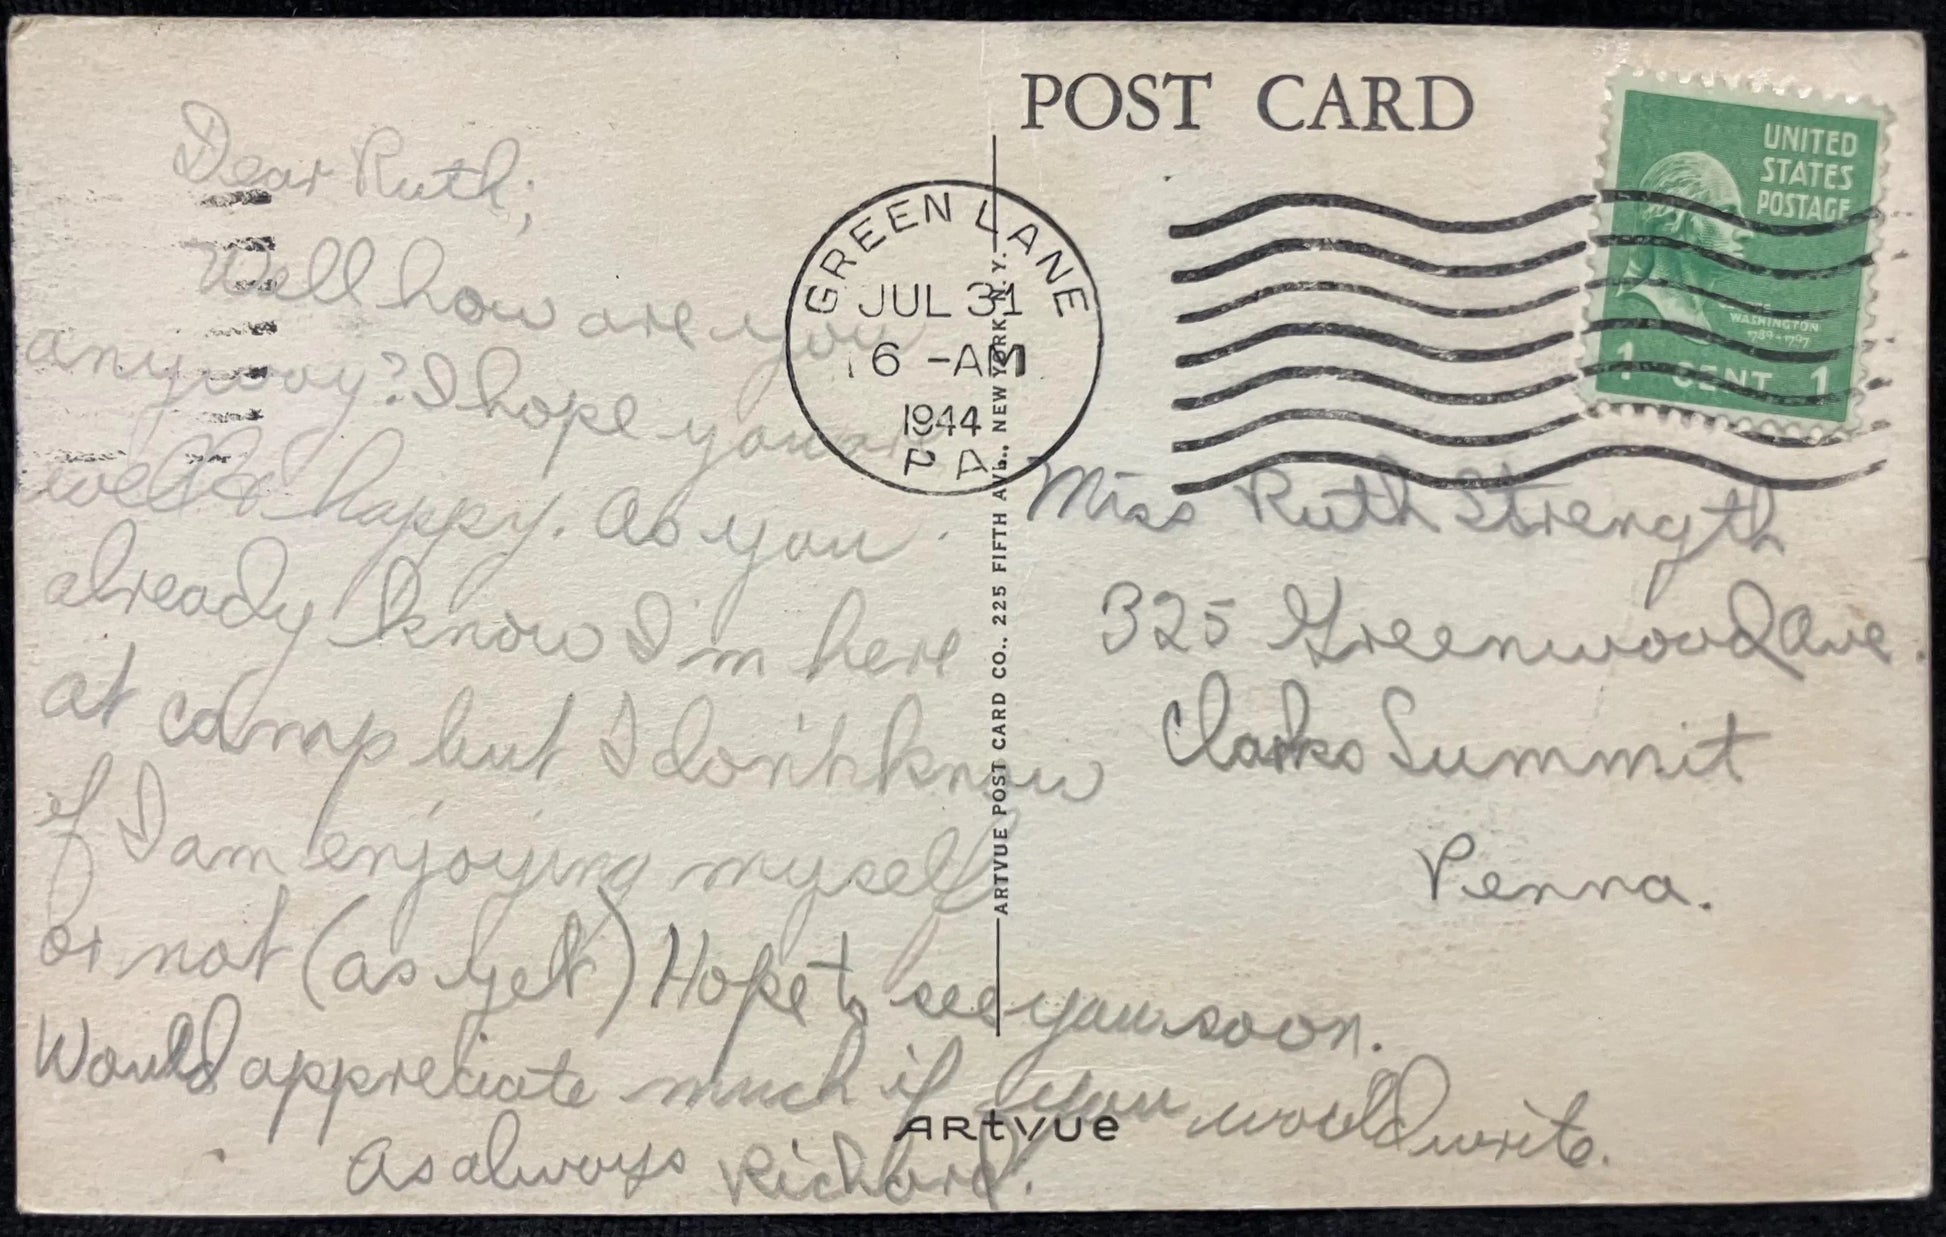 Dear Ruth;
Well how are you
anyway? I hope you are
well & happy. As you
already know I'm here
at camp but I don't know
if I am enjoying myself
or not (as yet) Hope to see you soon.
Would appreciate much if you would write.
As always Richard.
POST CARD
UNITED
STATES
POSTAGE
WASHINGTON
1789-1797
1 CENT 1
GREEN LANE
JUL 31
6 -AM
1944
PA.
ARTVUE POST CARD CO., 225 FIFTH AVE., NEW YORK, N.Y.
Miss Ruth Strength
325 Greenwood Ave.
Clarks Summit
Penna.
ARTVUE